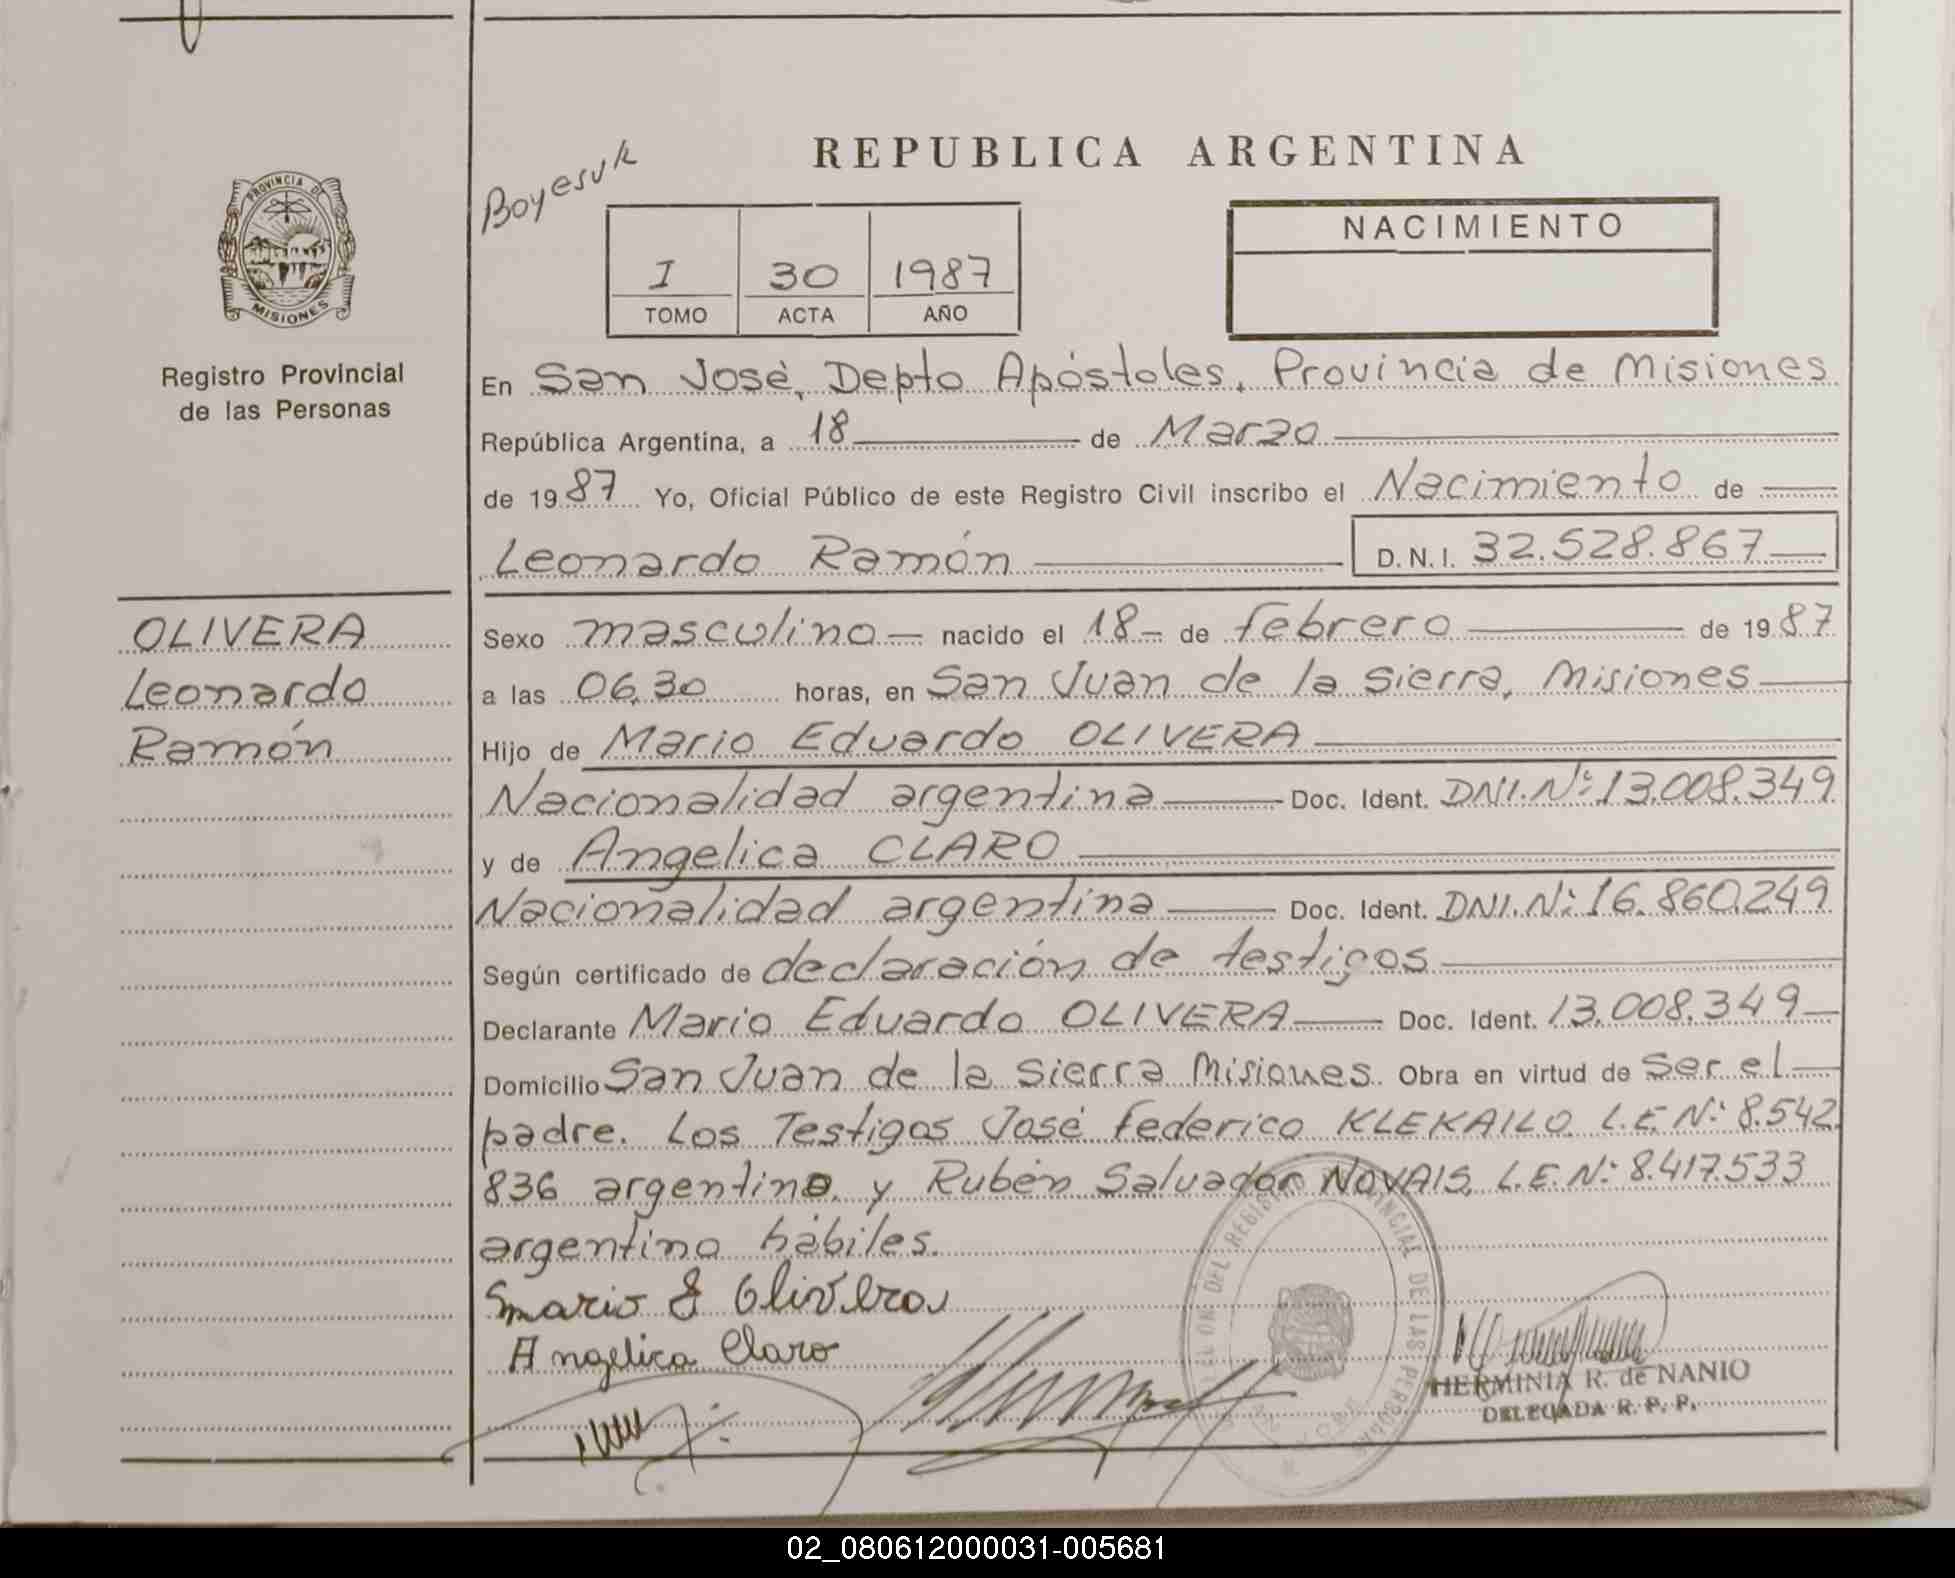 REPUBLICA ARGENTINA
Boyesuk
PROVINCIA DE
MISIONES
Registro Provincial
de las Personas
I 30 1987
TOMO ACTA AÑO
NACIMIENTO
En San José, Depto Apóstoles, Provincia de Misiones
República Argentina, a 18 de Marzo
de 1987 Yo, Oficial Público de este Registro Civil inscribo el Nacimiento de
Leonardo Ramón D.N.I. 32.528.867
OLIVERA
Leonardo
Ramón
Sexo masculino nacido el 18 de febrero de 1987
a las 06,30 horas, en San Juan de la Sierra, Misiones
Hijo de Mario Eduardo OLIVERA
Nacionalidad argentina Doc. Ident. DNI.Nº:13.008.349
y de Angelica CLARO
Nacionalidad argentina Doc. Ident. DNI.Nº:16.860.249
Según certificado de declaración de testigos
Declarante Mario Eduardo OLIVERA Doc. Ident. 13.008.349
Domicilio San Juan de la Sierra Misiones. Obra en virtud de ser el
padre. Los Testigos José Federico KLEKAILO L.E.Nº:8.542.
836 argentino y Rubén Salvador NOVAIS, L.E.Nº:8.417.533
argentino hábiles.
Mario E Olivera
Angelica Claro
HERMINIA R. de NANIO
DELEGADA R. P. P.
02_080612000031-005681